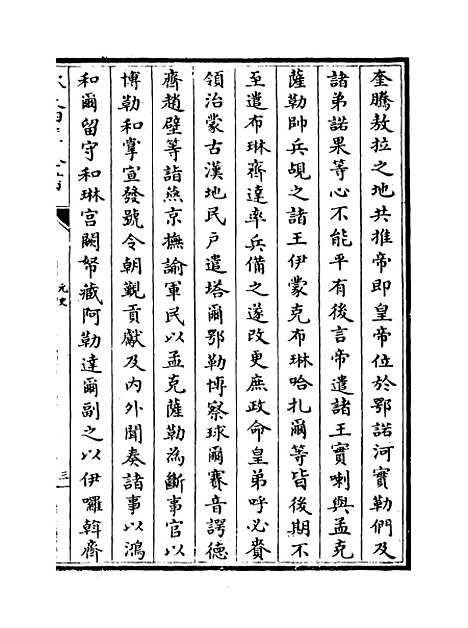 奎騰敖拉之地共推帝即皇帝位於鄂諾河實勒們及
諸弟諾果等心不能平有後言帝遣諸王實喇與孟克
薩勒帥兵覘之諸王伊蒙克布琳哈扎爾等皆後期不
至遣布琳齊達率兵備之遂改更庶政命皇弟呼必賚
領治蒙古漢地民戶遣塔爾鄂勒博察球爾賽音諤德
齊趙壁等詣燕京撫諭軍民以孟克薩勒為斷事官以
博勒和掌宣發號令朝覲貢獻及內外聞奏諸事以鴻
和爾留守和琳宮闕帑藏阿勒達爾副之以伊囉斡齊
元史
三